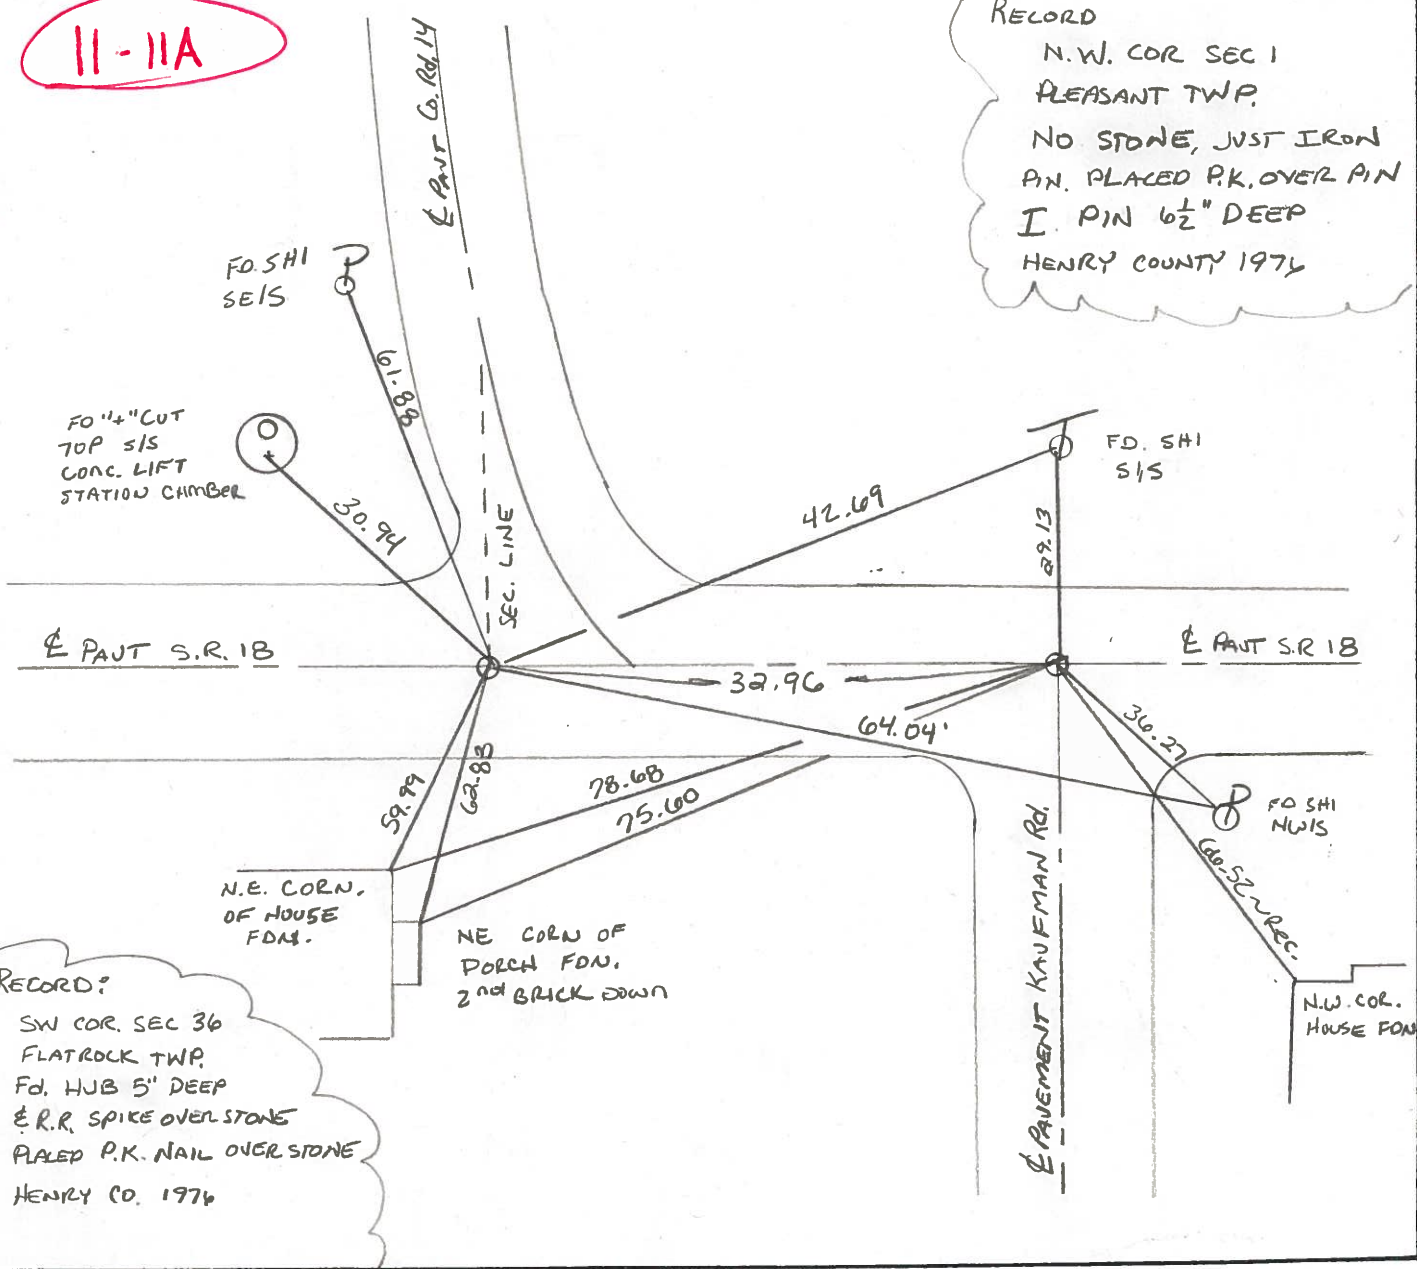 11-11A
RECORD
N.W. COR SEC 1
PLEASANT TWP.
NO STONE, JUST IRON
PIN. PLACED P.K. OVER PIN
I. PIN 6½" DEEP
HENRY COUNTY 1976
℄ PAVT Co. Rd. 14
FD. SHI
SE/S
61.88
FD "+" CUT
TOP S/S
CONC. LIFT
STATION CHMBER
30.94
SEC. LINE
42.69
FD. SHI
S/S
29.13
℄ PAVT S.R. 18
℄ PAVT S.R 18
32.96
64.04'
36.27
FD SHI
NW/S
66.52~REC.
N.W. COR.
HOUSE FDN
59.99
62.83
78.68
75.60
N.E. CORN.
OF HOUSE
FDN.
NE CORN OF
PORCH FDN.
2nd BRICK DOWN
℄ PAVEMENT KAUFMAN Rd.
RECORD:
SW COR. SEC 36
FLATROCK TWP.
Fd. HUB 5" DEEP
& R.R. SPIKE OVER STONE
PLACED P.K. NAIL OVER STONE
HENRY CO. 1976